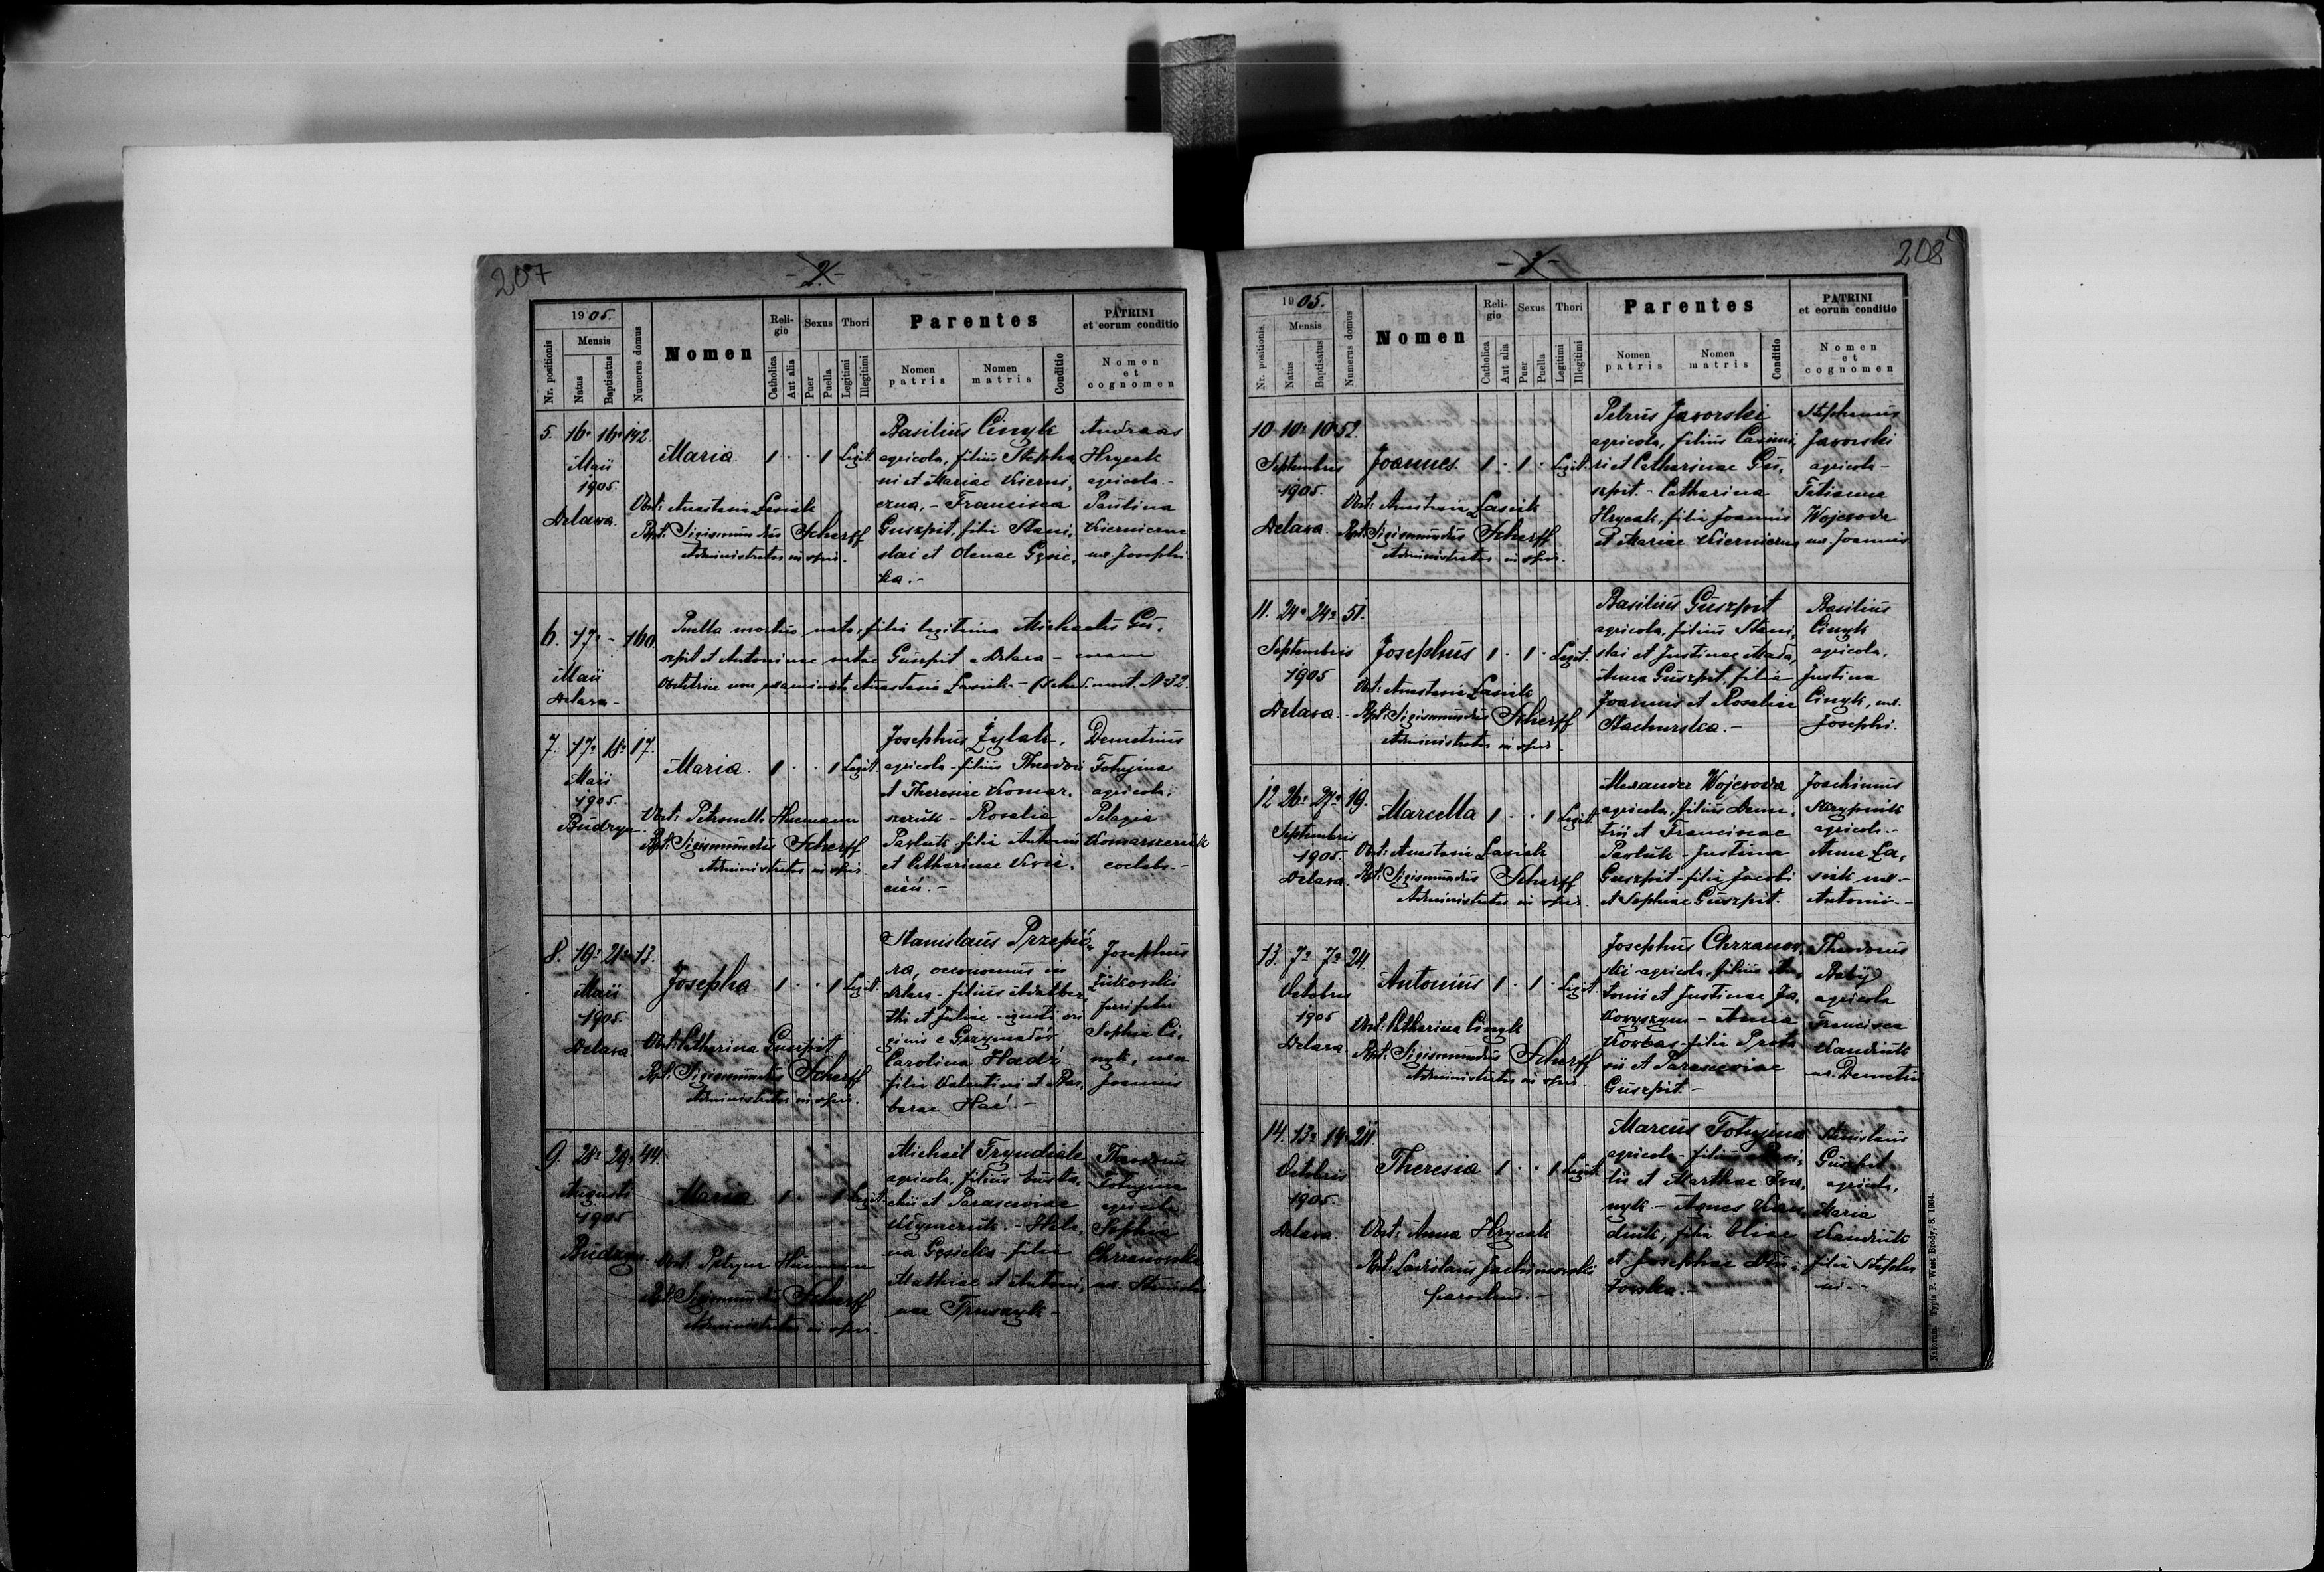 207
- 2. -
1905.
Nr. positionis
Mensis
Natus
Baptisatus
Numerus domus
Nomen
Religio
Catholica
Aut alia
Sexus
Puer
Puella
Thori
Legitimi
Illegitimi
Parentes
Nomen patris
Nomen matris
Conditio
PATRINI
et eorum conditio
Nomen
et
cognomen
5. 16a 16a 142.
Maii
1905.
Delawa.
Maria 1 · · 1 Legit.
Obst: Anastasia Łasiuk
Bpt: Sigismundus Scherff
Administrator in spir.
Basilius Cinyk
agricola, filius Stepha,
ni et Mariae Kierni,
czna, - Francisca
Guszpit, filia Stani,
slai et Olenae Gęsic,
ka. -
Andreas
Hrycak
agricola -
Paulina
Kierniczna
ux. Josephi
6. 17a - 160.
Maii
Delawa -
Puella mortua nata, filia legitima Michaelis Gu,
szpit et Antoninae natae Guszpit e Delawa -
Obstetrix non examinata Anastasia Łasiuk - (sched. mort. No 32.
7. 17a 18a 17.
Maii
1905.
Budzyn.
Maria. 1 · · 1 Legit.
Obst: Petronella Huemann
Bpt: Sigismundus Scherff
Administrator in spir.
Josephus Żylak,
agricola - filius Theodori
et Theresiae Komar,
szczuk - Rosalia
Pawluk filia Antonii
et Catharinae
Demetrius
Fotujma
agricola.
Pelagia
coelebs -
8. 19a 21a 13.
Maii
1905.
Delawa
Josepha 1 · · 1 Legit.
Obst: Catharina Guszpit
Bpt: Sigismundus Scherff
Administrator in spir.
Stanislaus Przepió,,
ra, oeconomus in
Delawa - filius Adalber,
thi et Juliae - ignoti ori
ginis e Grzymałów
Carolina Hadz,
filia Valentini et Bar,
barae Hać. -
Josephus
Żółkowski
Sophia Ci,
nyk, uxor
Joannis
9. 28a 29a 44.
Augusti
1905
Budzyn.
Maria 1 · · 1 Legit.
Obst. Huemann
Bpt: Sigismundus Scherff
Administrator in spir.
Michaël Fryndiak
agricola, filius Eusta,
chii et Parasceviae
- Hele,
na Gęsicka - filia
Mathiae et Antoni,
nae
Theodorus
Fotujma
agricola
Sophia
Chrzanowska
ux. Stanislai
208
- 3 -
1905.
Nr. positionis
Mensis
Natus
Baptisatus
Numerus domus
Nomen
Religio
Catholica
Aut alia
Sexus
Puer
Puella
Thori
Legitimi
Illegitimi
Parentes
Nomen patris
Nomen matris
Conditio
PATRINI
et eorum conditio
Nomen
et
cognomen
10. 10a 10a 52.
Septembris
1905.
Delawa.
Joannes. 1 · 1 · Legit.
Obst: Anastasia Łasiuk
Bpt: Sigismundus Scherff
Administrator in spir.
Petrus Jaworski
agricola, filius Casimi,
ri et Catharinae Gu,
szpit. - Catharina
Hrycak, filia Joannis
et Mariae Kierniczna
Stephanus
Jaworski
agricola -
Tatianna
Wojewoda
ux. Joannis
11. 24a 24a 51.
Septembris
1905
Delawa. -
Josephus 1 · 1 · Legit.
Obst: Anastasia Łasiuk
Bpt: Sigismundus Scherff
Administrator in spir.
Basilius Guszpit
agricola, filius Stani,
slai et Justinae
Anna Guszpit, filia
Joannis et Rosaliae
Stachurska. -
Basilius
Cinyk
agricola,
Justina
Cinyk, ux.
Josephi.
12 26a 27a 19.
Septembris
1905.
Delawa.
Marcella 1 · · 1 Legit.
Obst: Anastasia Łasiuk
Bpt: Sigismundus Scherff
Administrator in spir.
Alexander Wojewoda
agricola, filius Deme,
trii et Franciscae
Pawluk - Justina
Guszpit - filia Jacobi
et Sophiae Guszpit.
Joachimus
Skrypnik
agricola. -
Anna Ła,
siuk ux. -
Antonii. -
13. 7a 7a 24.
Octobris
1905
Delawa
Antonius 1 · 1 · Legit.
Obst: Catharina Cinyk
Bpt: Sigismundus Scherff
Administrator in spir.
Josephus Chrzanow,
ski agricola, filius An,
tonii et Justinae Ja,
- Anna
Korbas - filia Prota
sii et Parasceviae
Guszpit -
Theodorus
Babij
agricola
Francisca
Kandiuk
ux. Demetrii
14. 13a 14a 211.
Octobris
1905.
Delawa.
Theresia 1 · · 1 Legit.
Obst: Anna Hrycak
Bpt: Ladislaus Jachimowski
parochus. -
Marcus Fotujma
agricola - filius Basi,
lii et Marthae
- Agnes Kan,
diuk, filia Eliae
et Josephae
Stanislaus
Guszpit
agricola,
Maria
Kandiuk
filia Stepha
ni. -
Natorum. Typis F. West Brody, 8. 1904.